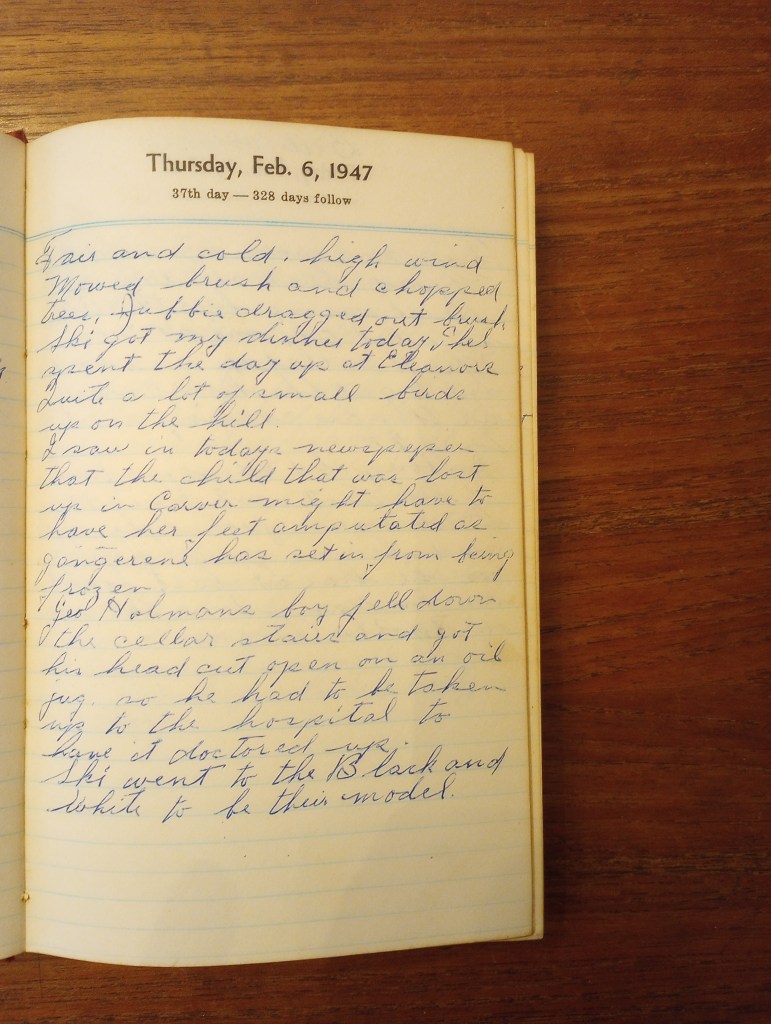 Thursday, Feb. 6, 1947
37th day — 328 days follow
Fair and cold. high wind
Mowed brush and chopped
trees, Jubbie dragged out brush
Ski got my dinner today, She
spent the day up at Eleanors
Quite a lot of small birds
up on the hill.
I saw in todays newspeper
that the child that was lost
up in Carver might have to
have her feet amputated as
gangerene has set in from being
frozen.
Geo Holmans boy fell down
the cellar stairs and got
his head cut open on an oil
jug. so he had to be taken
up to the hospital to
have it doctored up.
Ski went to the Black and
White to be their model.